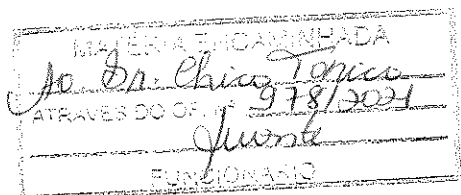 MATÉRIA ENCAMINHADA
Ao Sr. Chico
ATRAVÉS DO OF. Nº 978/2021
FUNCIONÁRIO